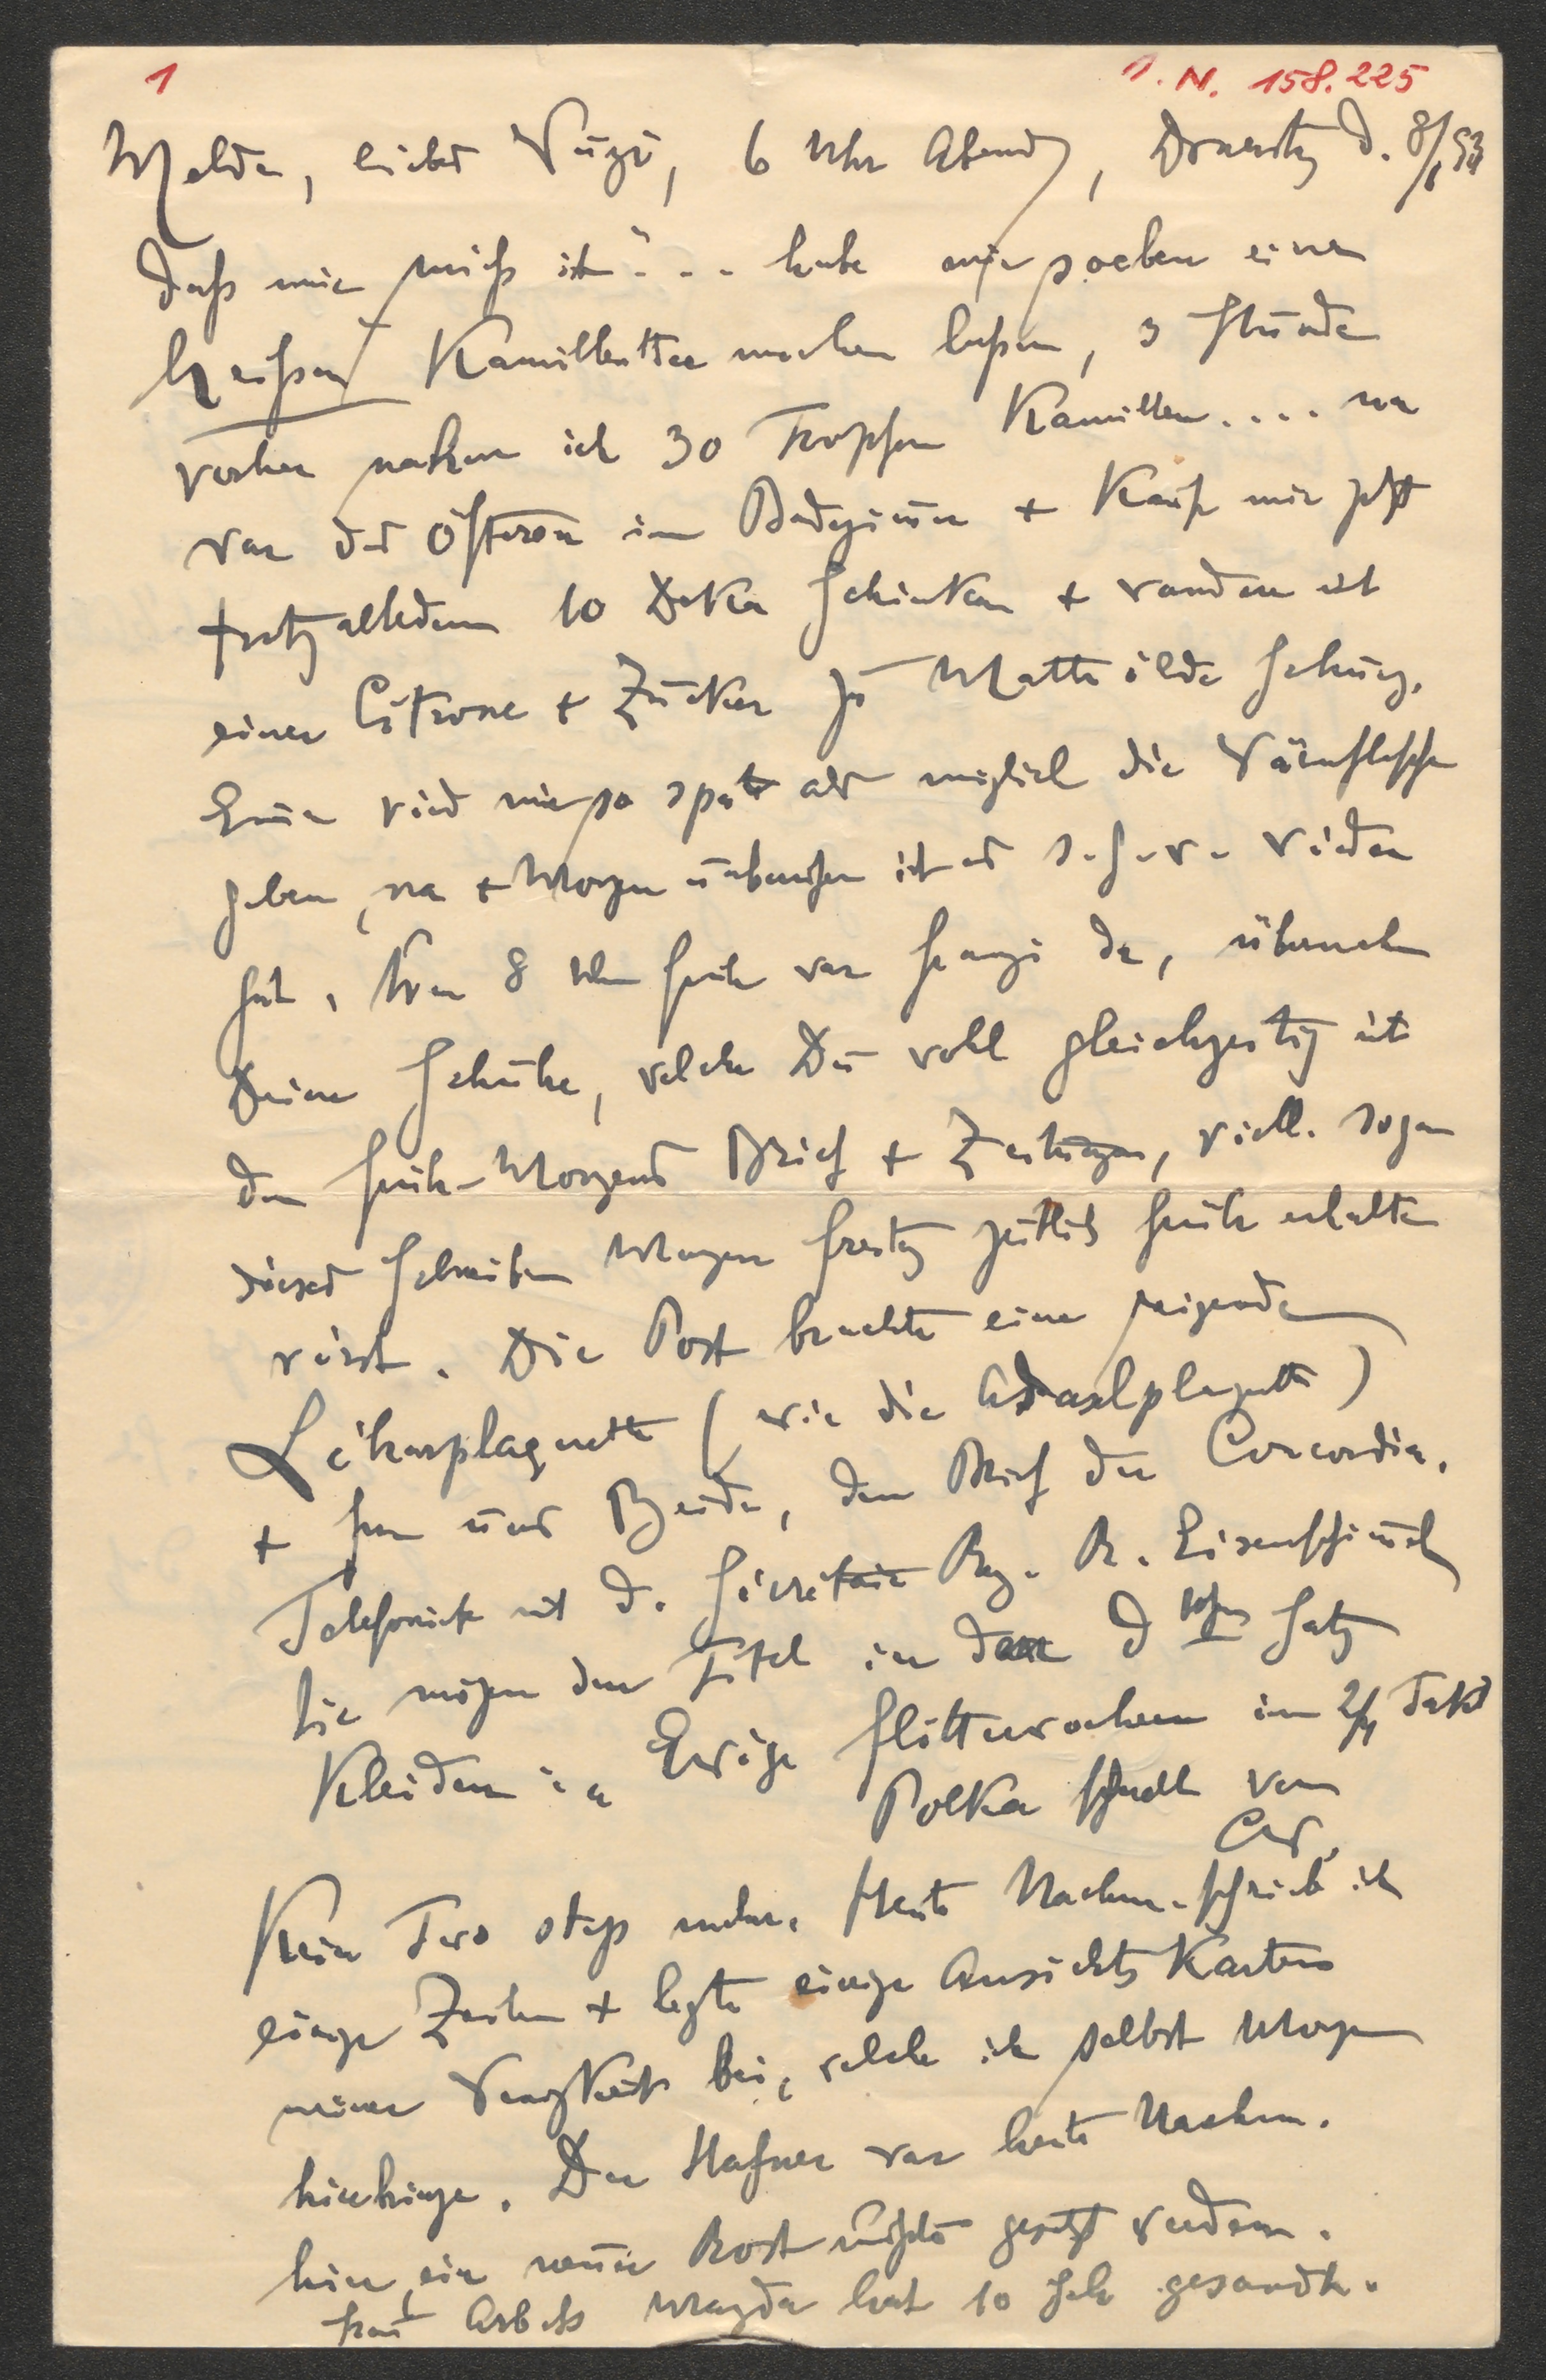 1
I. N. 158.225
Melde, liebes Vugi, 6 Uhr Abends, Donnerstg d. 8/1 53
daß mir mieß ist" ... habe mir soeben einen
heißen Kamillenthee machen laßen, 3 Stunden
vorher nahm ich 30 Tropfen Kamillen.... na
war des Öfteren im Badezimmer + kaufe mir jetzt
trotzalledem 10 Deka Schinken + wandere mit
einer Citrone + Zucker zu Matthilde Schurz.
Emma wird mir so spät als möglich die Wärmflasche
geben, na + Morgen unberufen ist es s. G. w. wieder
gut. Um 8 Uhr früh war Franzi da, übernahm
Deine Schuhe, welche Du wohl gleichzeitig mit
dem früh-Morgens Brief + Zeitungen, viell. sogar
dieses Schreiben Morgen Freitag zeitlich früh erhalten
wirst. Die Post brachte eine reizende
Leharplaquette (wie die plaquette)
+ für uns Beide, den Brief der Concordia.
Telefonirte mit d. Secretair Reg. R. Eisenschimmel
Sie mögen den Titel in Satz
Kleiden in Ewige Flitterwochen im 2/4 Takt
Polka schnell von
CW.
Kein Two step mehr. Heute Nachm. schrieb ich
einige Zeilen + legte einige Ansichts Karten
meiner Wenigkeit bei, welche ich selbst Morgen
hinbringe. Der Hafner war heute Nachm.
hier, ein neuer Rost müßte gesetzt werden.
Frau Arbes Magda hat 10 Sch gesandt.